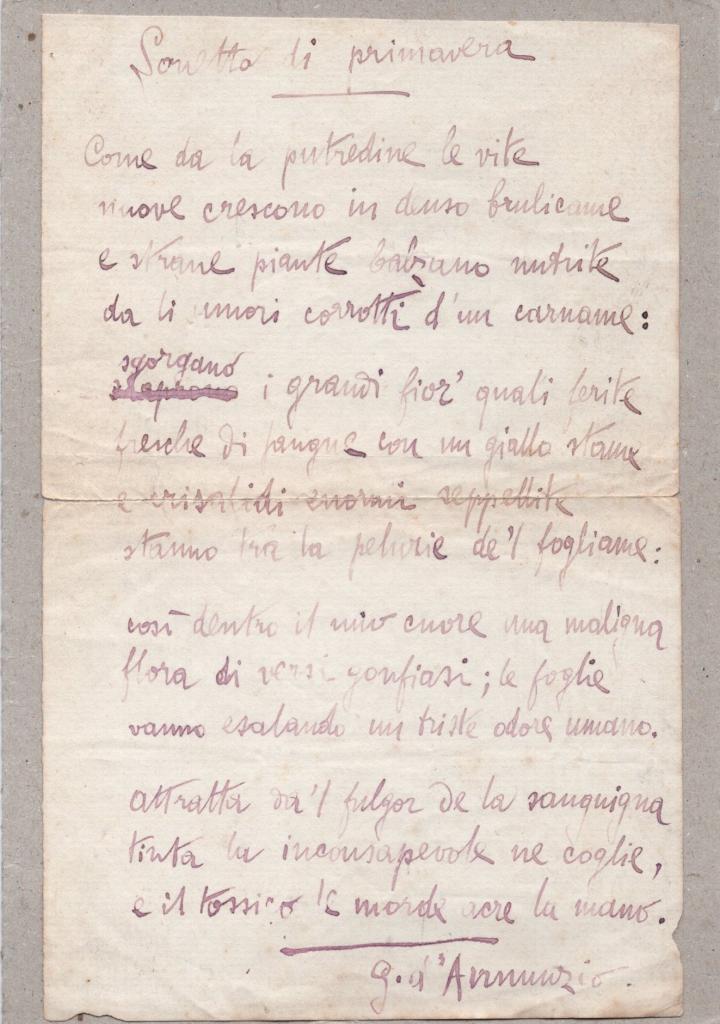 Sonetto di primavera
Come da la putredine le vite
nuove crescono in denso brulicame
e strane piante balzano nutrite
da li umori corrotti d'un carname:
sgorgano
i grandi fior' quali ferite
fresche di sangue con un giallo stame
e crisalidi enormi seppellite
stanno tra la pelurie de 'l fogliame:
così dentro il mio cuore una maligna
flora di versi gonfiasi; le foglie
vanno esalando un triste odore umano.
Attratta da 'l fulgor de la sanguigna
tinta la inconsapevole ne coglie,
e il tossico le morde acre la mano.
G. d'Annunzio.